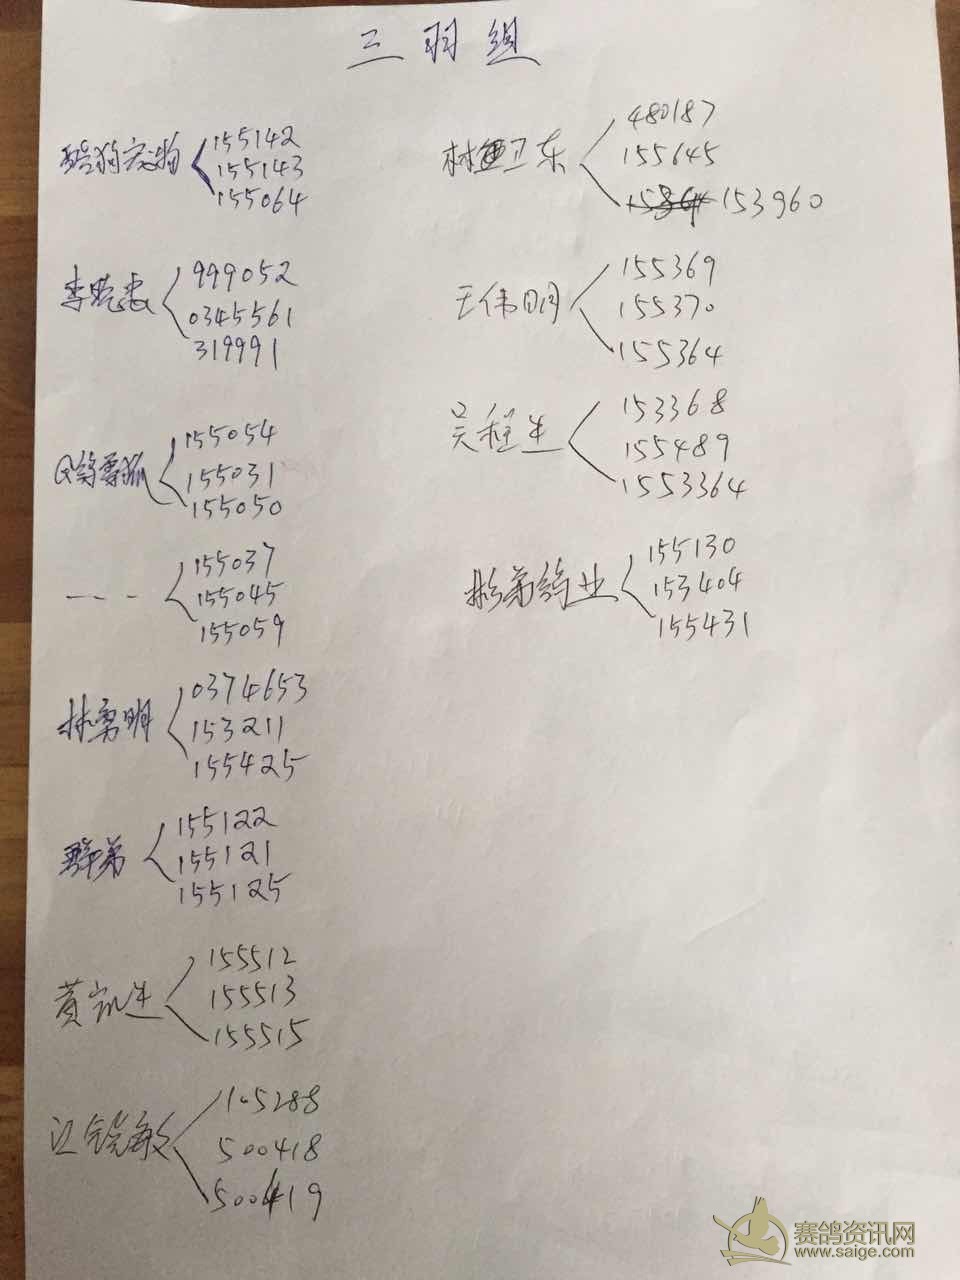 三羽组
酷狗宠物
155142
155143
155064
李晓忠
999052
0345561
319991
Q鸽雪狐
155054
155031
155050
- - -
155037
155045
155059
林勇明
0374653
153211
155425
群弟
155122
155121
155125
黄凯生
155512
155513
155515
江铙敏
105288
500418
500419
林卫东
480187
155645
153960
王伟明
155369
155370
155364
吴程生
153368
155489
1553364
彬弟鸽业
155130
153404
155431
赛鸽资讯网
www.saige.com